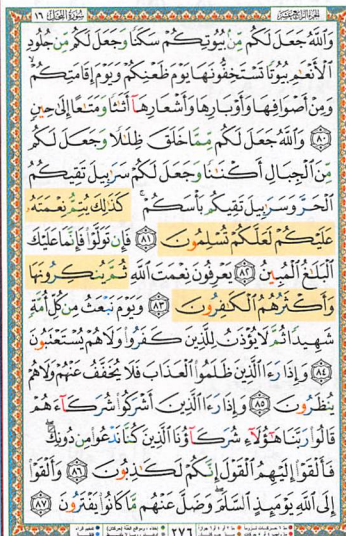 الجزء الرابع عشر سورة النحل ١٦
وَاللَّهُ جَعَلَ لَكُم مِّنۢ بُيُوتِكُمْ سَكَنًا وَجَعَلَ لَكُم مِّن جُلُودِ
الْأَنْعَامِ بُيُوتًا تَسْتَخِفُّونَهَا يَوْمَ ظَعْنِكُمْ وَيَوْمَ إِقَامَتِكُمْ ۙ
وَمِنْ أَصْوَافِهَا وَأَوْبَارِهَا وَأَشْعَارِهَآ أَثَٰثًا وَمَتَٰعًا إِلَىٰ حِينٍ
﴿٨٠﴾ وَاللَّهُ جَعَلَ لَكُم مِّمَّا خَلَقَ ظِلَٰلًا وَجَعَلَ لَكُم
مِّنَ الْجِبَالِ أَكْنَٰنًا وَجَعَلَ لَكُمْ سَرَٰبِيلَ تَقِيكُمُ
الْحَرَّ وَسَرَٰبِيلَ تَقِيكُم بَأْسَكُمْ ۚ كَذَٰلِكَ يُتِمُّ نِعْمَتَهُۥ
عَلَيْكُمْ لَعَلَّكُمْ تُسْلِمُونَ ﴿٨١﴾ فَإِن تَوَلَّوْا۟ فَإِنَّمَا عَلَيْكَ
الْبَلَٰغُ الْمُبِينُ ﴿٨٢﴾ يَعْرِفُونَ نِعْمَتَ اللَّهِ ثُمَّ يُنكِرُونَهَا
وَأَكْثَرُهُمُ الْكَٰفِرُونَ ﴿٨٣﴾ وَيَوْمَ نَبْعَثُ مِن كُلِّ أُمَّةٍ
شَهِيدًا ثُمَّ لَا يُؤْذَنُ لِلَّذِينَ كَفَرُوا۟ وَلَا هُمْ يُسْتَعْتَبُونَ
﴿٨٤﴾ وَإِذَا رَءَا الَّذِينَ ظَلَمُوا۟ الْعَذَابَ فَلَا يُخَفَّفُ عَنْهُمْ وَلَا هُمْ
يُنظَرُونَ ﴿٨٥﴾ وَإِذَا رَءَا الَّذِينَ أَشْرَكُوا۟ شُرَكَآءَهُمْ
قَالُوا۟ رَبَّنَا هَٰٓؤُلَآءِ شُرَكَآؤُنَا الَّذِينَ كُنَّا نَدْعُوا۟ مِن دُونِكَ ۖ
فَأَلْقَوْا۟ إِلَيْهِمُ الْقَوْلَ إِنَّكُمْ لَكَٰذِبُونَ ﴿٨٦﴾ وَأَلْقَوْا۟
إِلَى اللَّهِ يَوْمَئِذٍ السَّلَمَ ۖ وَضَلَّ عَنْهُم مَّا كَانُوا۟ يَفْتَرُونَ ﴿٨٧﴾
٢٧٦